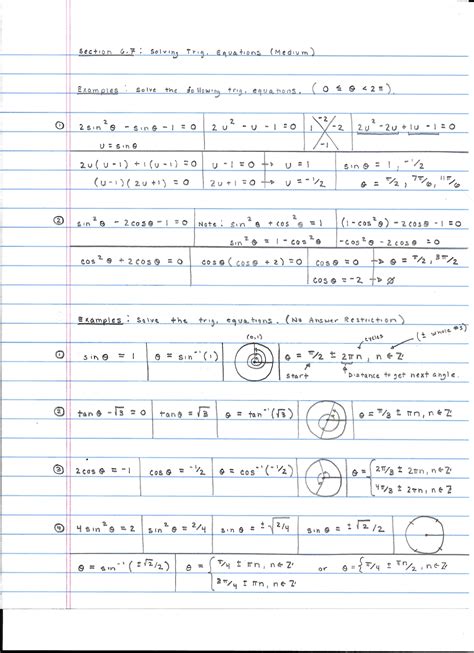 Section 6.7 : Solving Trig. Equations (Medium)
Examples : Solve the following trig. equations. ( 0 ≤ θ < 2π ).
① 2sin²θ - sinθ - 1 = 0 | 2u² - u - 1 = 0 | 1 -2 -2 -1 | 2u² - 2u + 1u - 1 = 0
u = sinθ
2u(u-1) + 1(u-1) = 0 | u - 1 = 0 → u = 1 | sinθ = 1, -1/2
(u-1)(2u+1) = 0 | 2u + 1 = 0 → u = -1/2 | θ = π/2, 7π/6, 11π/6
② sin²θ - 2cosθ - 1 = 0 | Note: sin²θ + cos²θ = 1 | (1 - cos²θ) - 2cosθ - 1 = 0
sin²θ = 1 - cos²θ | -cos²θ - 2cosθ = 0
cos²θ + 2cosθ = 0 | cosθ (cosθ + 2) = 0 | cosθ = 0 → θ = π/2, 3π/2
cosθ = -2 → ∅
Examples : Solve the trig. equations. (No Answer Restriction)
(0,1) cycles (± whole #s)
① sinθ = 1 | θ = sin⁻¹(1) | θ = π/2 ± 2πn, n∈Z
Start Distance to get next angle.
② tanθ - √3 = 0 | tanθ = √3 | θ = tan⁻¹(√3) | θ = π/3 ± πn, n∈Z
③ 2cosθ = -1 | cosθ = -1/2 | θ = cos⁻¹(-1/2) | θ = { 2π/3 ± 2πn, n∈Z
4π/3 ± 2πn, n∈Z
④ 4sin²θ = 2 | sin²θ = 2/4 | sinθ = ±√2/4 | sinθ = ±√2/2
θ = sin⁻¹(±√2/2) | θ = { π/4 ± πn, n∈Z or θ = { π/4 ± πn/2, n∈Z
3π/4 ± πn, n∈Z